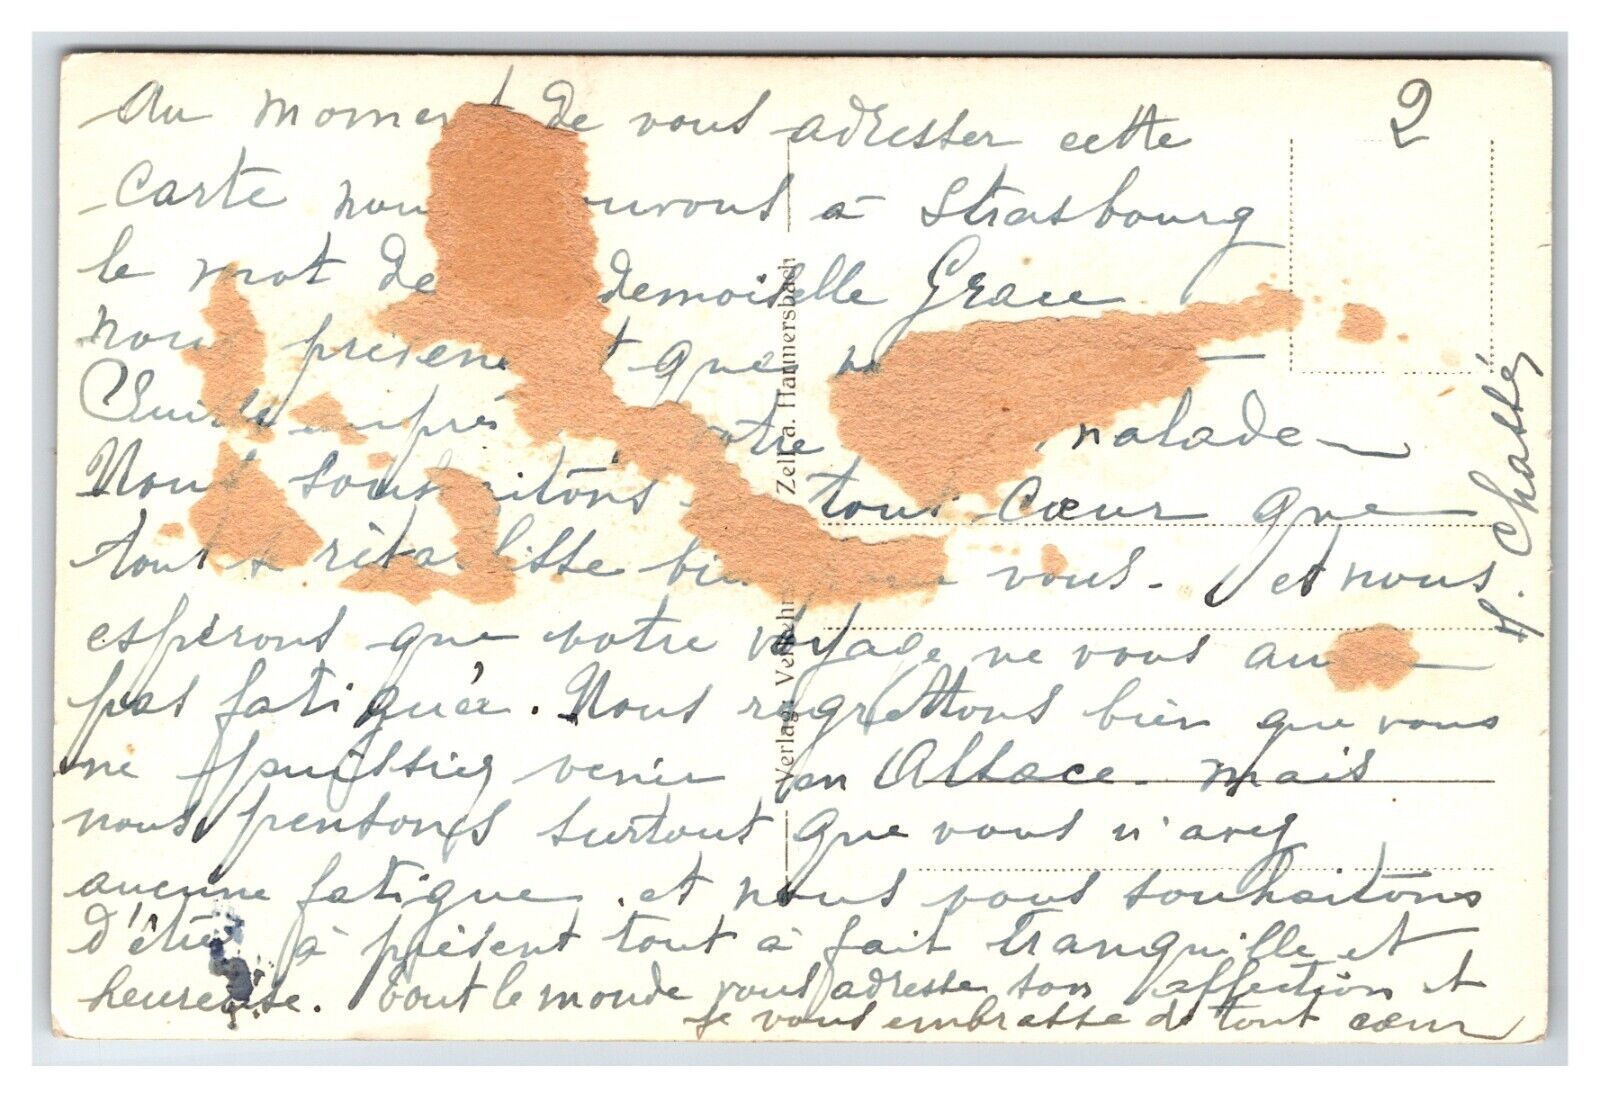 2
Au momen de vous adresser cette
carte nou ouvons à Strasbourg
le mot de demoiselle Grace
nous présen t que
auprès votre malade
Nous souh itons tout cœur que
tout se réta lisse bi vous. et nous
espérons que votre voyage ne vous au
pas fatiguée. Nous regrettons bien que vous
ne puissiez venir en Alsace. mais
nous pensons surtout que vous n'avez
aucune fatigue. et nous vous souhaitons
d'être à présent tout à fait tranquille et
heureuse. tout le monde vous adresse son affection et
je vous embrasse de tout cœur
Verlag: Verkehrs Zell a. Harmersbach